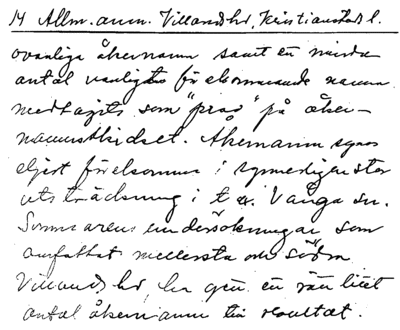 14 Allm. anm. Villands hd, Kristianstads l.
ovanliga åkernamn samt en mindre
antal vanligtvis förekommande namn
medtagits som "prov" på åker-
namnsskicket. Åkernamn synes
eljest förekomma i synnerligen stor
utsträckning i t. ex. Vånga sn.
Sommarens undersökningar som
omfattat mellersta och södra
Villands hd, har gett en rätt litet
antal åkernamn till resultat.